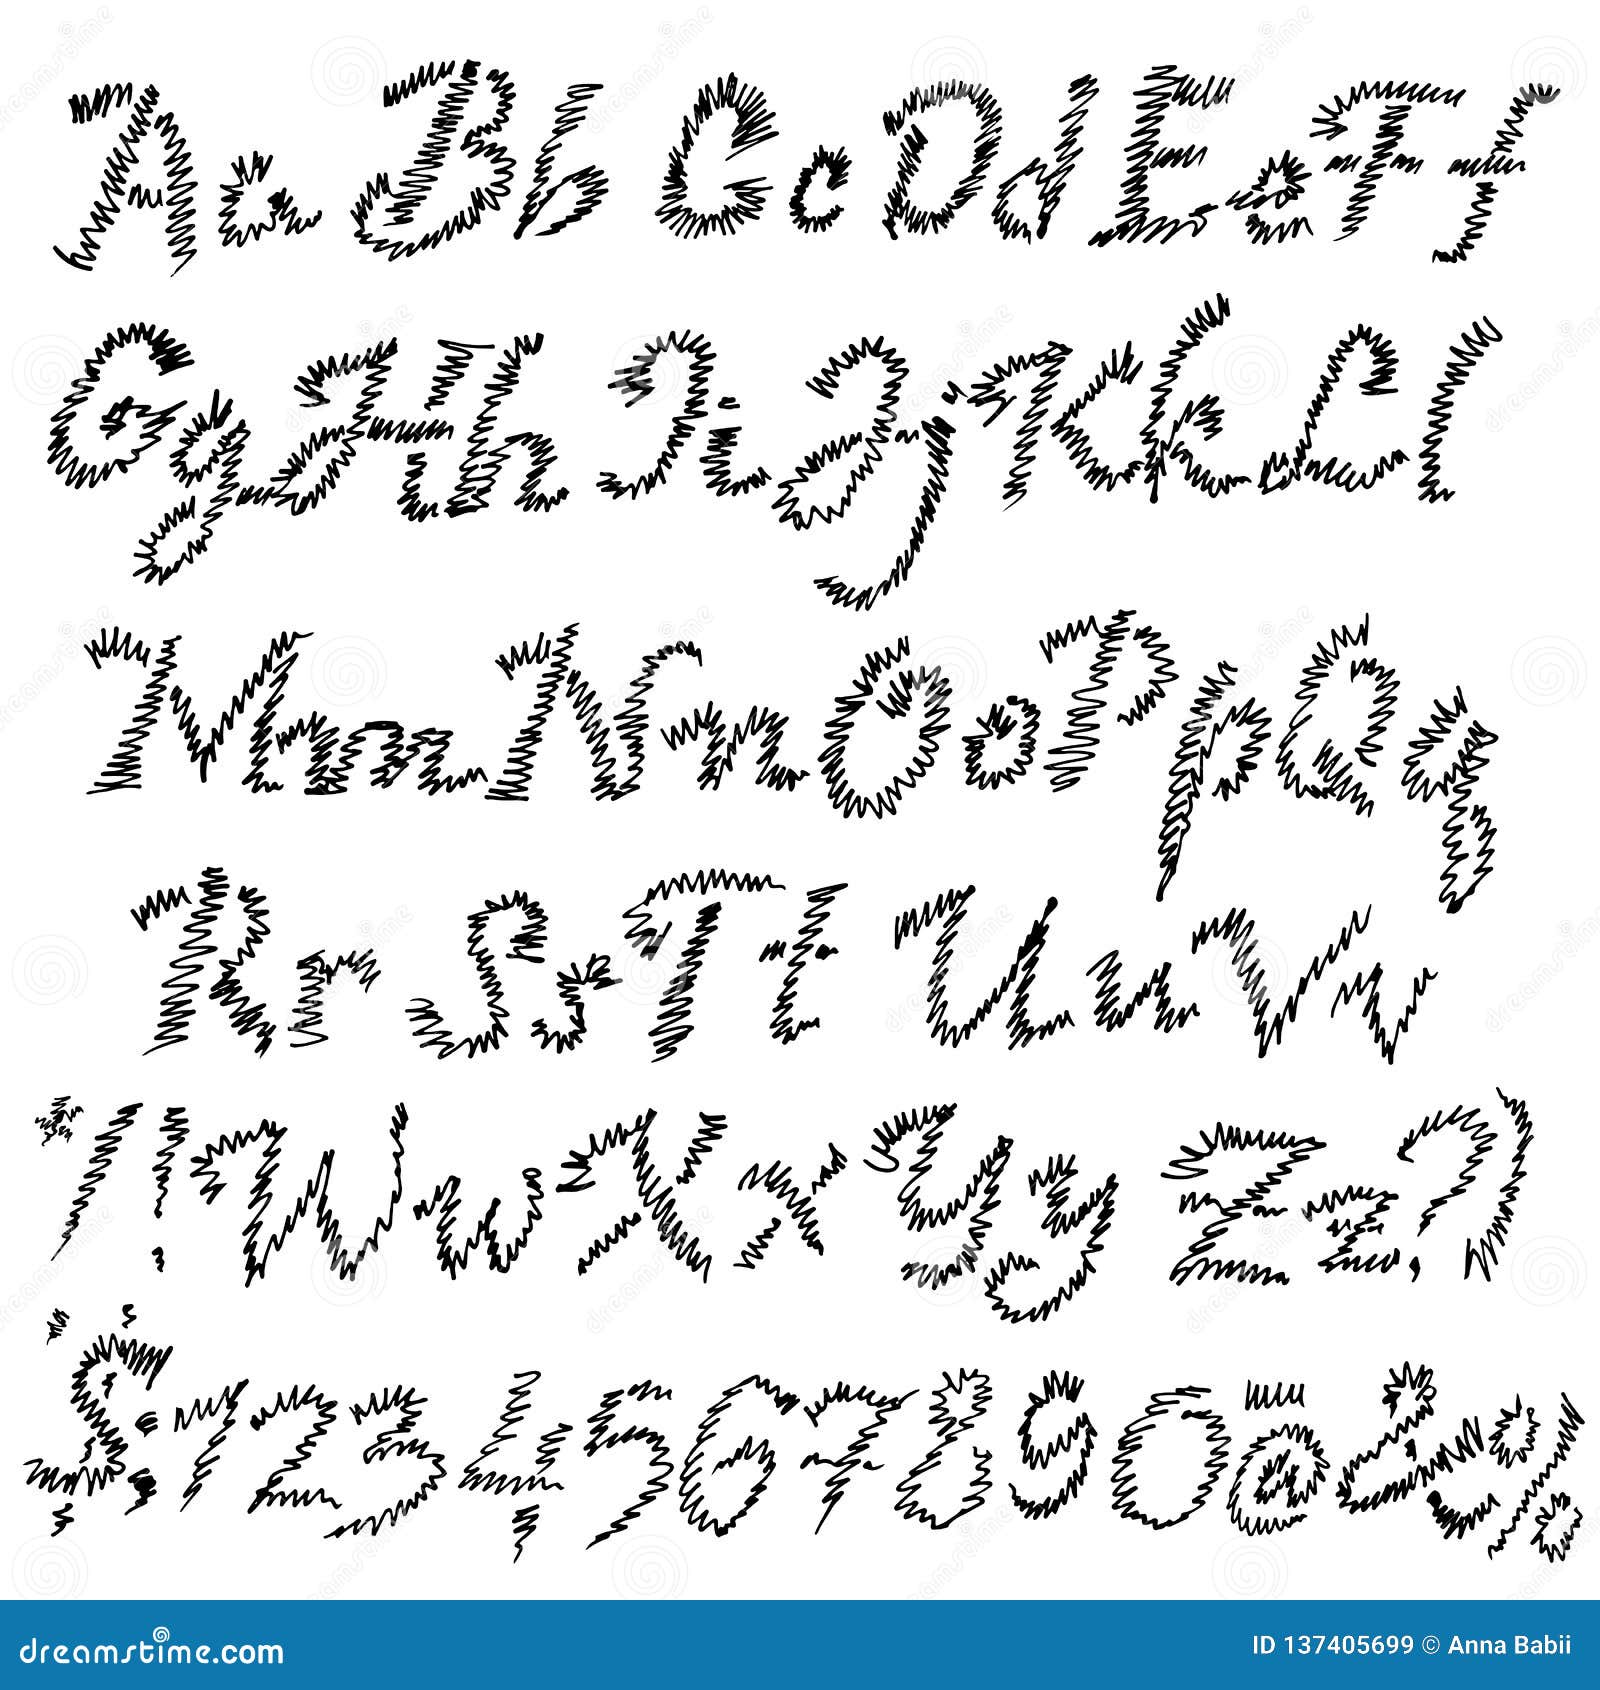 Aa Bb Cc Dd Ee Ff
Gg Hh Ii Jj Kk Ll
Mm Nn Oo Pp Qq
Rr Ss Tt Uu Vv
*/! Ww Xx Yy Zz ,?)
$ 1 2 3 4 5 6 7 8 9 0 @ & %
dreamstime.com
ID 137405699 © Anna Babii